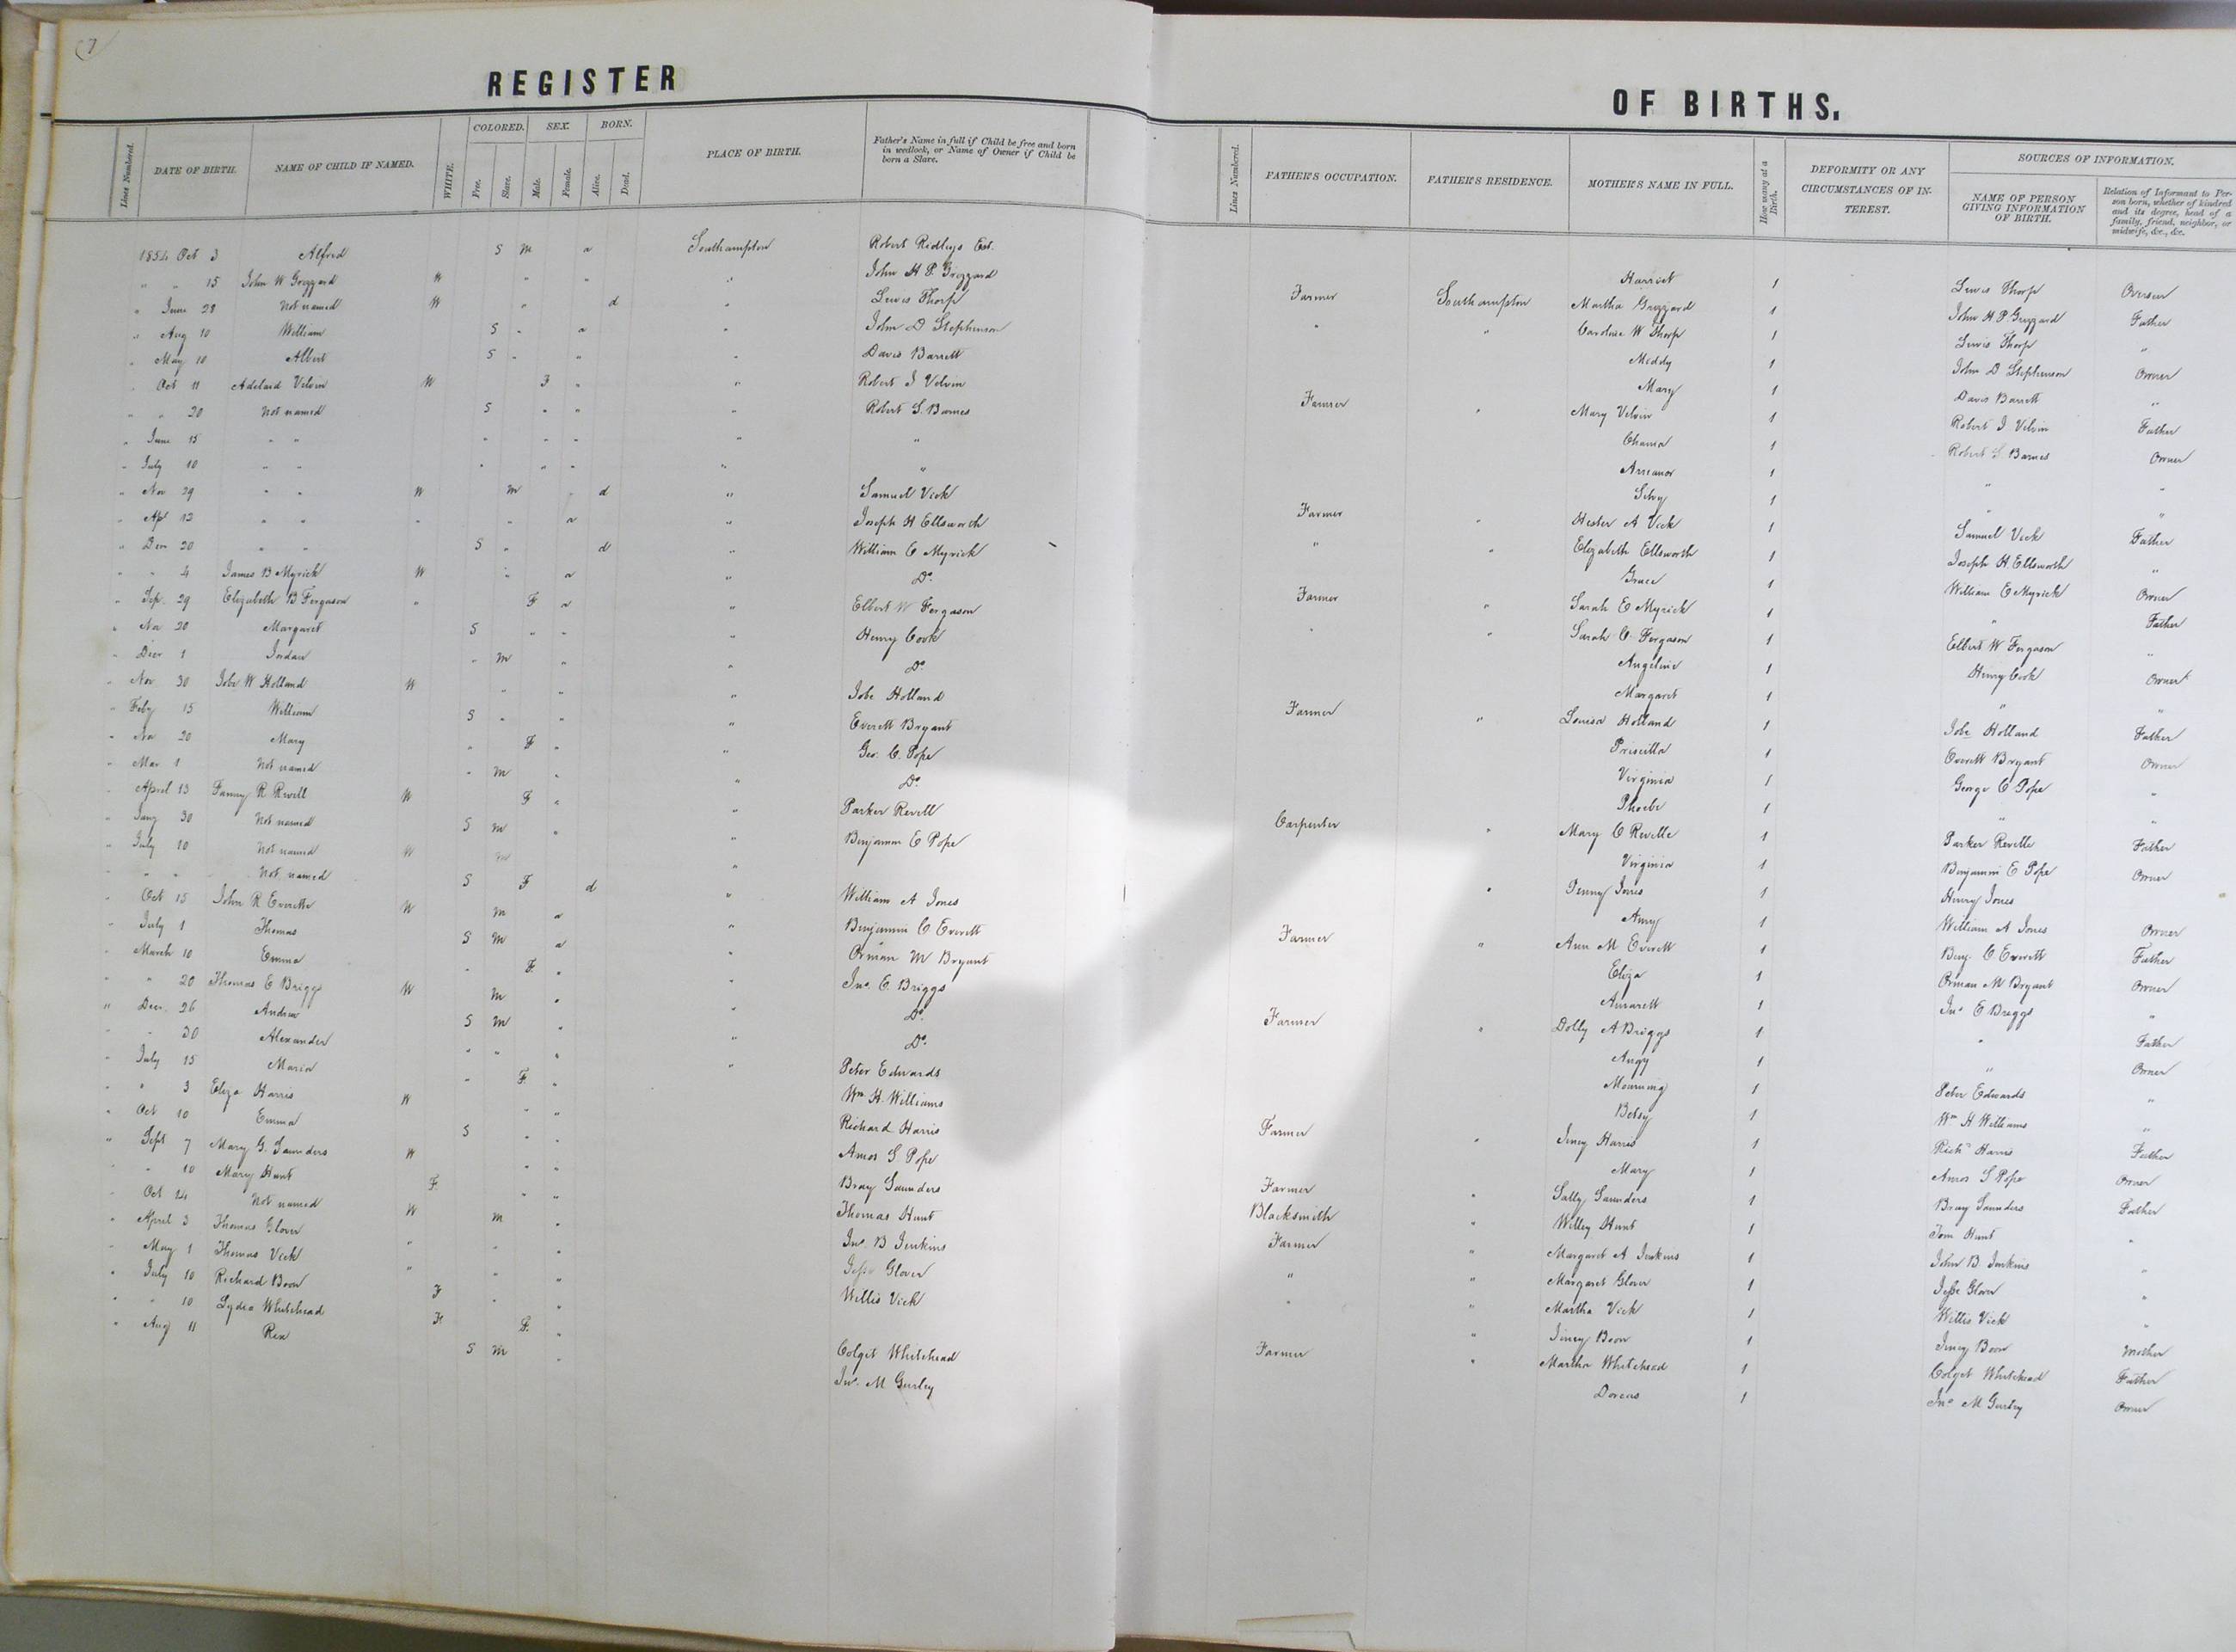 7
REGISTER
OF BIRTHS.
Lines Numbered. DATE OF BIRTH. NAME OF CHILD IF NAMED. WHITE. COLORED. Free. Slave. SEX. Male. Female. BORN. Alive. Dead. PLACE OF BIRTH. Father's Name in full if Child be free and born in wedlock, or Name of Owner if Child be born a Slave.
Lines Numbered. FATHER'S OCCUPATION. FATHER'S RESIDENCE. MOTHER'S NAME IN FULL. How many at a Birth. DEFORMITY OR ANY CIRCUMSTANCES OF INTEREST. SOURCES OF INFORMATION. NAME OF PERSON GIVING INFORMATION OF BIRTH. Relation of Informant to Person born, whether of kindred and its degree, head of a family, friend, neighbor, or midwife, &c., &c.
1854 Oct 3 Alfred S M a Southampton Robert Ridleys Est.
" " 15 John W Grizzard W " " " John H P Grizzard
" June 28 Not named W " d " Lewis Thorp
" Aug 10 William S " a " John D Stephenson
" May 10 Albert S " " " Davis Barrett
" Oct 11 Adelaid Velvin W F " " Robert J Velvin
" " 20 Not named S " " " Robert S. Barnes
" June 15 " " " " " " "
" July 10 " " " " " " "
" Nov 29 " " W M d " Samuel Vick
" Apl 13 " " " " a " Joseph H Ellsworth
" Dec 20 " " S " d " William C Myrick
" " 4 James B Myrick W " a " Do
" Sep. 29 Elizabeth B Fergason " F a " Elbert W Fergason
" Nov 20 Margaret S " " " Henry Cook
" Decr 1 Jordan " M " " Do
" Nov 30 Jobe W Holland W " " " Jobe Holland
" Feby 15 William S " " Everett Bryant
" Nov 20 Mary " F " " Geo. C. Pope
" Mar 1 Not named " M " " Do
" April 13 Fanny R Revell W F " " Parker Revell
" Jany 30 Not named S M " " Benjamin E Pope
" July 10 Not named W M "
" " " Not named S F d " William A Jones
" Oct 15 John R Everette W M a " Benjamin C Everett
" July 1 Thomas S M a " Orman M Bryant
" March 10 Emma " F " " Jno. E. Briggs
" " 20 Thomas E Briggs W M " " Do
" Dec. 26 Andrew S M " " Do
" " 30 Alexander " " " " Peter Edwards
" July 15 Maria " F " Wm. H. Williams
" " 3 Eliza Harris W " " Richard Harris
" Oct 10 Emma S " " Amos S Pope
" Sept 7 Mary G. Saunders W " " Bray Saunders
" " 10 Mary Hunt F " " Thomas Hunt
" Oct 14 Not named W M " Jno. B Jenkins
" April 3 Thomas Glover " " " Jesse Glover
" May 1 Thomas Vick " " " Willis Vick
" July 10 Richard Boon F " "
" " 10 Lydia Whitehead F F " Colgit Whitehead
" Aug 11 Rex S M " Jno. M Gurley
Harriet 1 Lewis Thorp Overseer
Farmer Southampton Martha Grizzard 1 John H P Grizzard Father
" " Caroline W Thorp 1 Lewis Thorp "
Middy 1 John D Stephenson Owner
Mary 1 Davis Barrett "
Farmer " Mary Velvin 1 Robert J Velvin Father
Chania 1 Robert S. Barnes Owner
Arreanor 1 " "
Silvy 1 " "
Farmer " Hester A Vick 1 Samuel Vick Father
" " Elizabeth Ellsworth 1 Joseph H. Ellsworth "
Grace 1 William C Myrick Owner
Farmer " Sarah E Myrick 1 " Father
" " Sarah C Fergason 1 Elbert W Fergason "
Angeline 1 Henry Cook Owner
Margaret 1 " "
Farmer " Louisa Holland 1 Jobe Holland Father
Priscilla 1 Everett Bryant Owner
Virginia 1 George C Pope "
Phoebe 1 " "
Carpenter " Mary C Revelle 1 Parker Revelle Father
Virginia 1 Benjamin E Pope Owner
" Penny Jones 1 Henry Jones
Amy 1 William A Jones Owner
Farmer " Ann M Everett 1 Benj. C Everett Father
Eliza 1 Orman M Bryant Owner
Amarett 1 Jno E Briggs "
Farmer " Dolly A Briggs 1 " Father
Angy 1 " Owner
Mourning 1 Peter Edwards "
Betsy 1 Wm H Williams "
Farmer " Jincy Harris 1 Richd Harris Father
Mary 1 Amos S Pope Owner
Farmer " Sally Saunders 1 Bray Saunders Father
Blacksmith " Willey Hunt 1 Tom Hunt "
Farmer " Margaret A Jenkins 1 John B Jenkins "
" " Margaret Glover 1 Jesse Glover "
" " Martha Vick 1 Willis Vick "
" Jincy Boon 1 Jincy Boon Mother
Farmer " Martha Whitehead 1 Colgit Whitehead Father
Dorcas 1 Jno M Gurley Owner